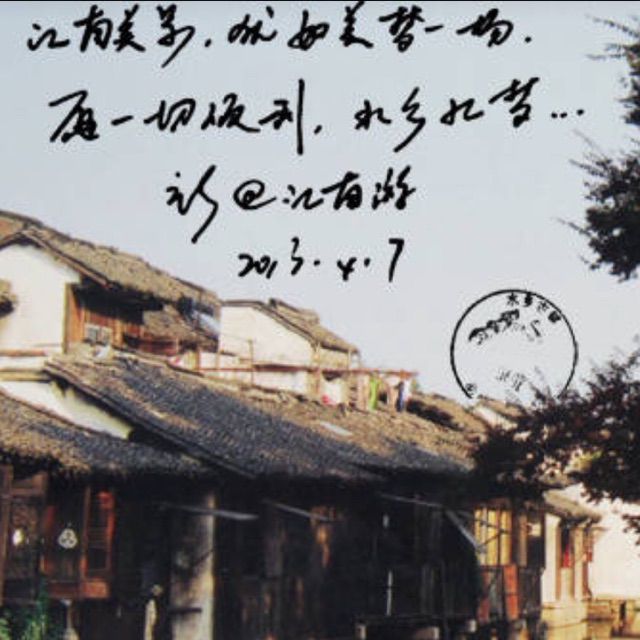 江南美景，犹如美梦一场.
愿一切顺利，水乡梦...
@江南游
2013.4.7